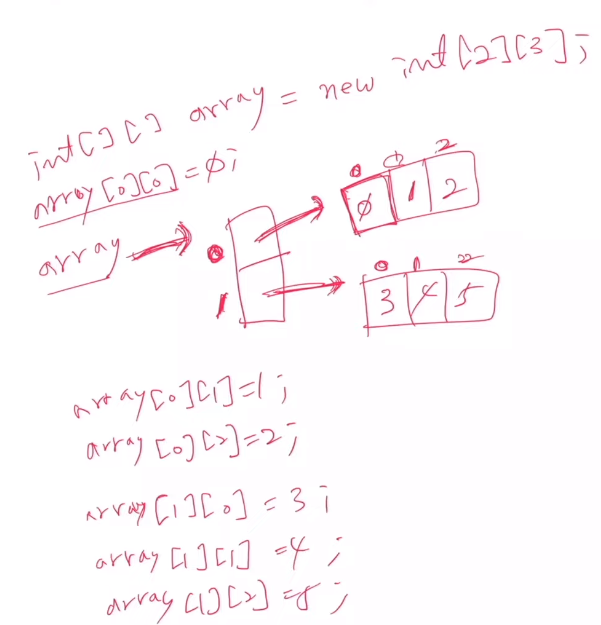 int[][] array = new int[2][3];
array[0][0]=0;
array
0
1
0 1 2
0 1 2
0 1 2
3 4 5
array[0][1]=1;
array[0][2]=2;
array[1][0]=3;
array[1][1]=4;
array[1][2]=5;